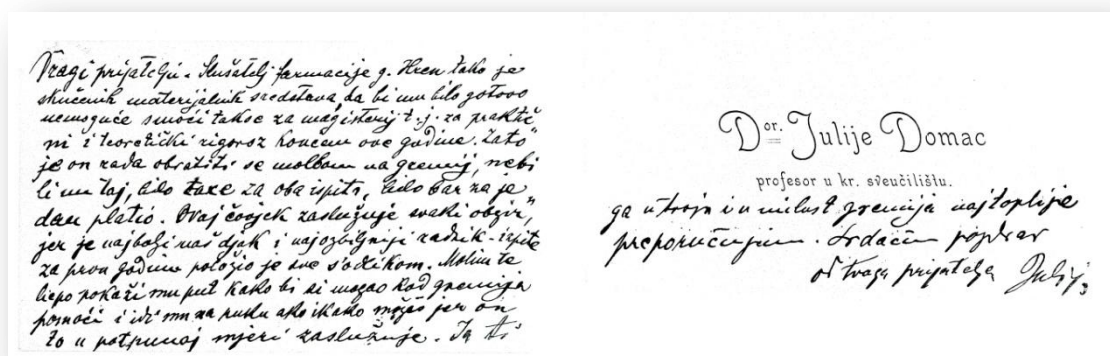 Dragi prijatelju. Slušatelj farmacije g. Hren tako je
skučenih materijalnih sredstava, da bi mu bilo gotovo
nemoguće smoći takse za magisterij t. j. za prakti-
čni i teoretički rigoroz koncem ove godine. Zato
je on rada obratiti se molbom na gremij, nebi
li mu taj, bilo taxe za oba ispita, bilo bar za je-
dan platio. Ovaj čovjek zaslužuje svaki obzir,
jer je najbolji naš djak i najozbiljniji radnik. Ispite
za prvu godinu položio je sve s'odlikom. Molim te
liepo pokaži mu put kako bi si mogao kod gremija
pomoći i idi mu na ruku ako ikako možeš jer on
to u potpunoj mjeri zaslužuje. Ja ti
D or. Julije Domac
profesor u kr. sveučilištu.
ga u tvoju i u milost gremija najtoplije
preporučujem. Srdačan pozdrav
od tvoga prijatelja Julija